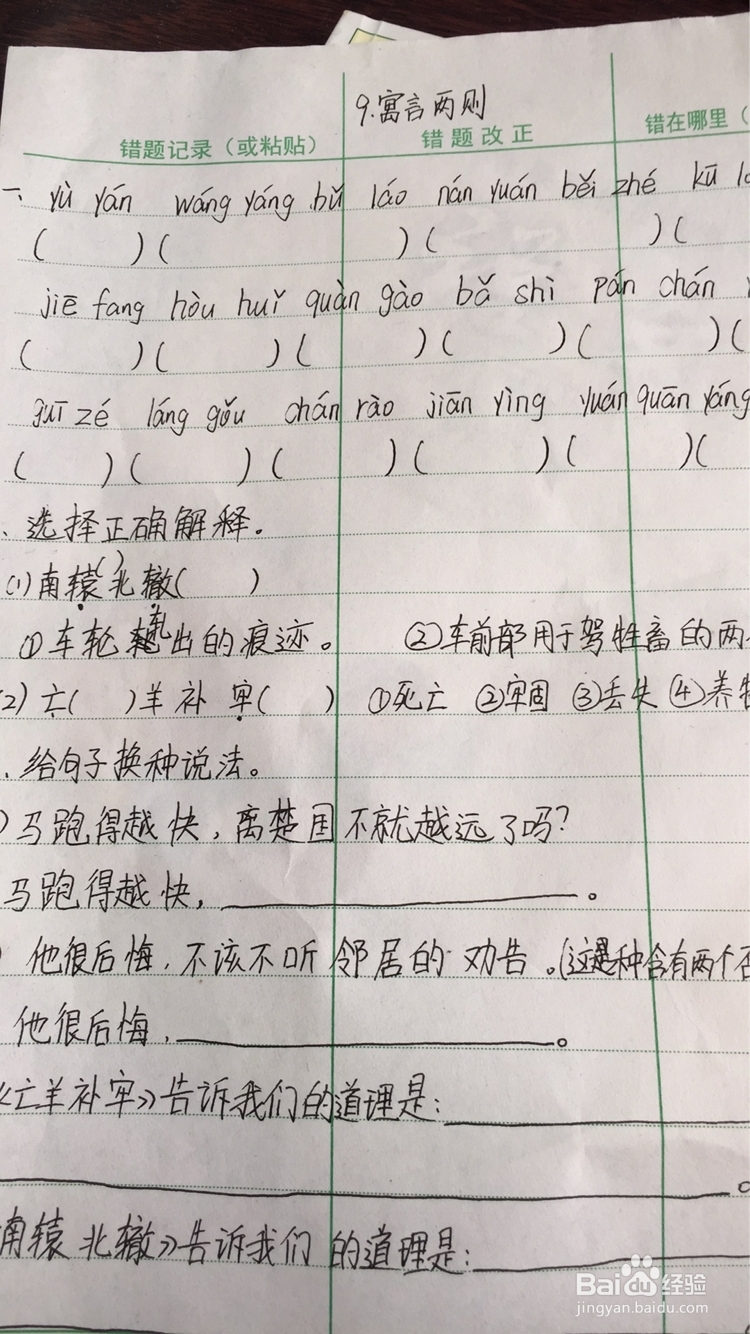 9.寓言两则
错题记录（或粘贴） 错题改正 错在哪里（
一、yù yán wáng yáng bǔ láo nán yuán běi zhé kū
( )( )( )(
jiē fang hòu huǐ quàn gào bǎ shì pán chán
( )( )( )( )( )(
guī zé láng gǒu chán rào jiān yìng yuán quān yáng
( )( )( )( )( )(
、选择正确解释。
(1)南辕( )北辙( )
①车轮轧出的痕迹。 ②车前部用于驾牲畜的两
2)亡( )羊补牢( ) ①死亡 ②牢固 ③丢失 ④养
、给句子换种说法。
)马跑得越快，离楚国不就越远了吗？
马跑得越快，。
)他很后悔，不该不听邻居的劝告。(这是种含有两个否
他很后悔，。
《亡羊补牢》告诉我们的道理是：
。
南辕北辙》告诉我们的道理是：
Baidu经验
jingyan.baidu.com